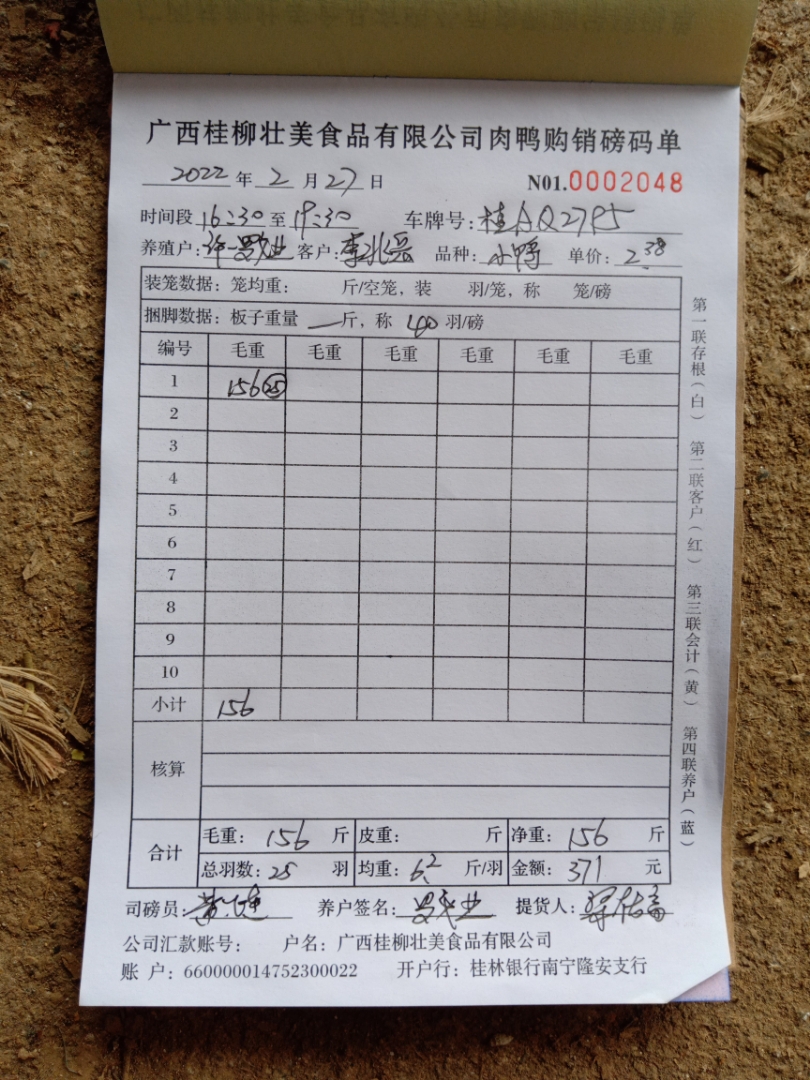 广西桂柳壮美食品有限公司肉鸭购销磅码单
2022年2月27日 N01.0002048
时间段 16:30至 19:30 车牌号:
养殖户: 客户: 李 品种: 小鸭 单价: 2.38
装笼数据:笼均重: 斤/空笼,装 羽/笼,称 笼/磅
捆脚数据:板子重量 — 斤,称 40 羽/磅
编号 毛重 毛重 毛重 毛重 毛重 毛重
1 156 25
2
3
4
5
6
7
8
9
10
小计 156
核算
合计 毛重: 156 斤 皮重: 斤 净重: 156 斤
总羽数: 25 羽 均重: 6.2 斤/羽 金额: 371 元
司磅员: 养户签名: 提货人:
公司汇款账号: 户名:广西桂柳壮美食品有限公司
账 户:660000014752300022 开户行:桂林银行南宁隆安支行
第一联存根(白) 第二联客户(红) 第三联会计(黄) 第四联养户(蓝)